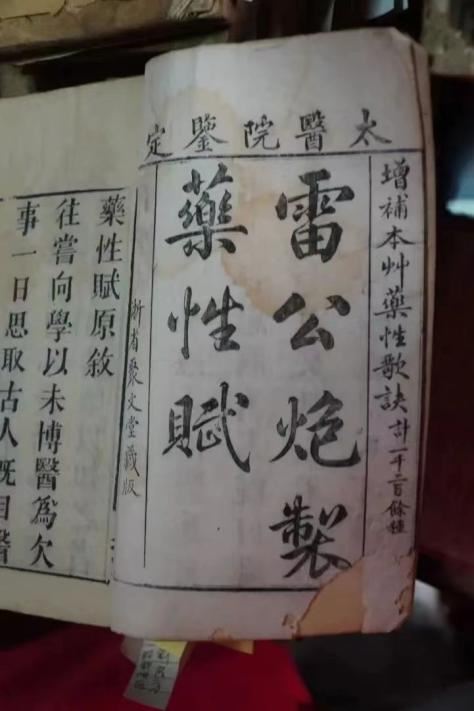 太醫院鑒定
增補本艸藥性歌訣計一千二百餘種
雷公炮製
藥性賦
浙省聚文堂藏版
藥性賦原敘
往嘗向學以未博醫爲欠
事一日思取古人